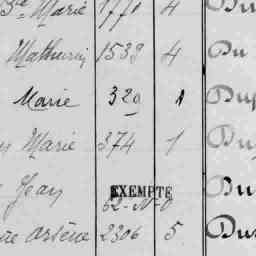 Marie 1770 4 Du
Mathurin 1533 4 Du
Marie 320 1 Dup
Marie 374 1 Du
Jean EXEMPTE Du
62-N-0
Arsène 2306 5 Du